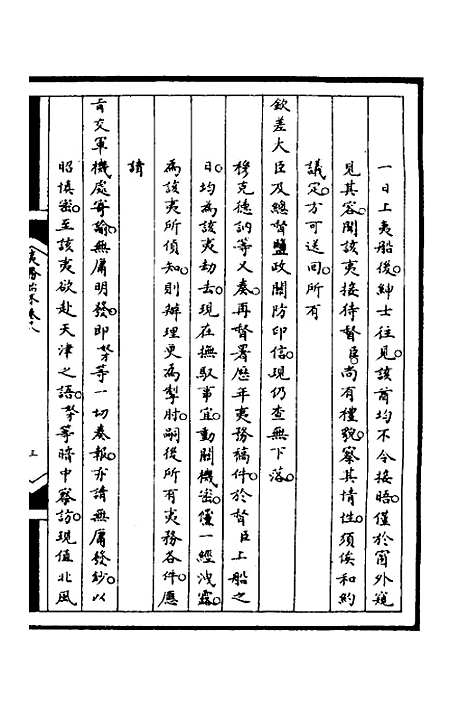 一日上夷船後紳士往見該酋均不令接晤僅於窗外窺
見其容聞該夷接待督臣尚有禮貌察其情性須俟和約
議定方可送回所有
欽差大臣及總督鹽政關防印信現仍查無下落
穆克德訥等又奏再督署歷年夷務稿件於督臣上船之
日均為該夷劫去現在撫馭事宜動關機密僅一經洩露
為該夷所偵知則辦理更為掣肘嗣後所有夷務各件應
請
旨交軍機處寄諭無庸明發即奴才等一切奏報亦請無庸發鈔以
昭慎密至該夷欲赴天津之語奴才等暗中察訪現值北風
夷務始末卷十八